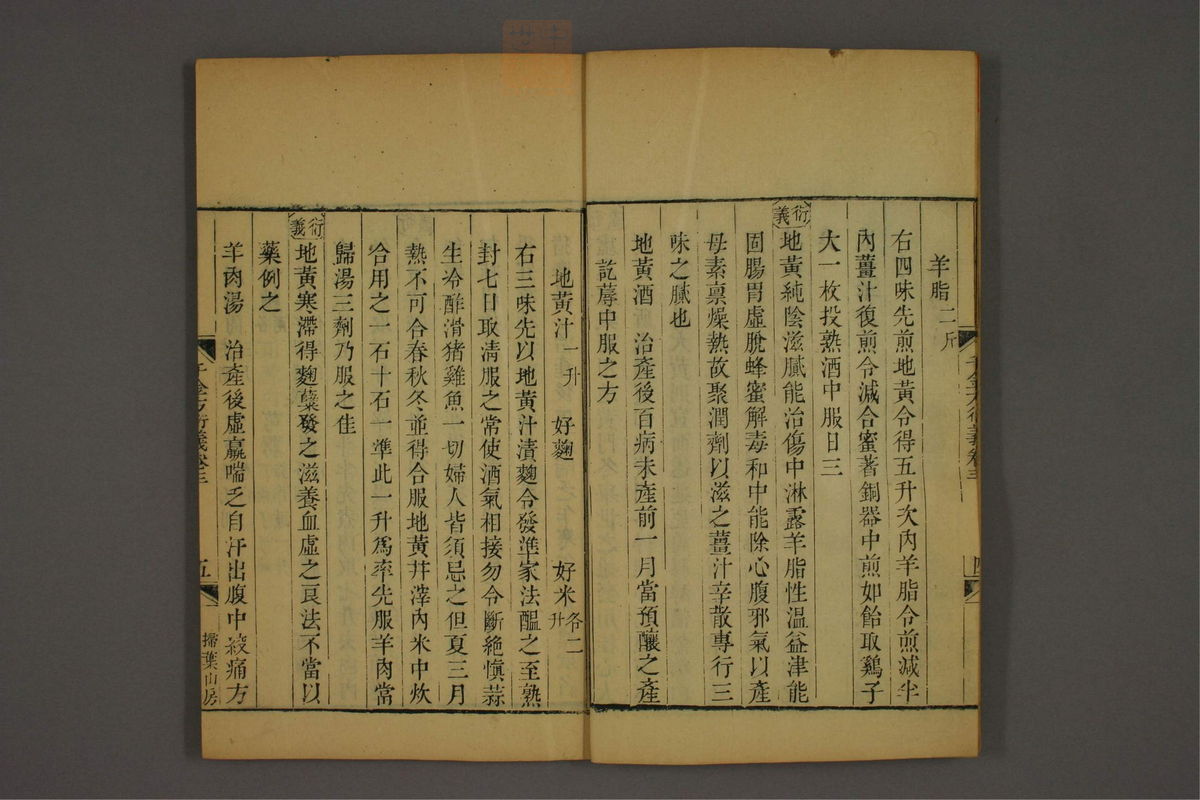 羊脂二斤
右四味先煎地黃令得五升次內羊脂令煎減半
內薑汁復煎令減合蜜著銅器中煎如飴取鷄子
大一枚投熟酒中服日三
衍義地黃純陰滋臟能治傷中淋露羊脂性溫益津能
固腸胃虛脫蜂蜜解毒和中能除心腹邪氣以產
母素禀燥熱故聚潤劑以滋之薑汁辛散專行三
味之膩也
地黃酒 治產後百病未產前一月當預釀之產
訖蓐中服之方
地黃汁一升 好麴 好米各二升
右三味先以地黃汁漬麴令發準家法醞之至熟
封七日取清服之常使酒氣相接勿令斷絶慎蒜
生冷酢滑猪雞魚一切婦人皆須忌之但夏三月
熱不可合春秋冬並得合服地黃并滓內米中炊
合用之一石十石一準此一升爲率先服羊肉當
歸湯三劑乃服之佳
衍義地黃寒滯得麴糵發之滋養血虛之良法不當以
藥例之
羊肉湯 治產後虛羸喘乏自汗出腹中㽲痛方
千金方衍義卷三 五 掃葉山房